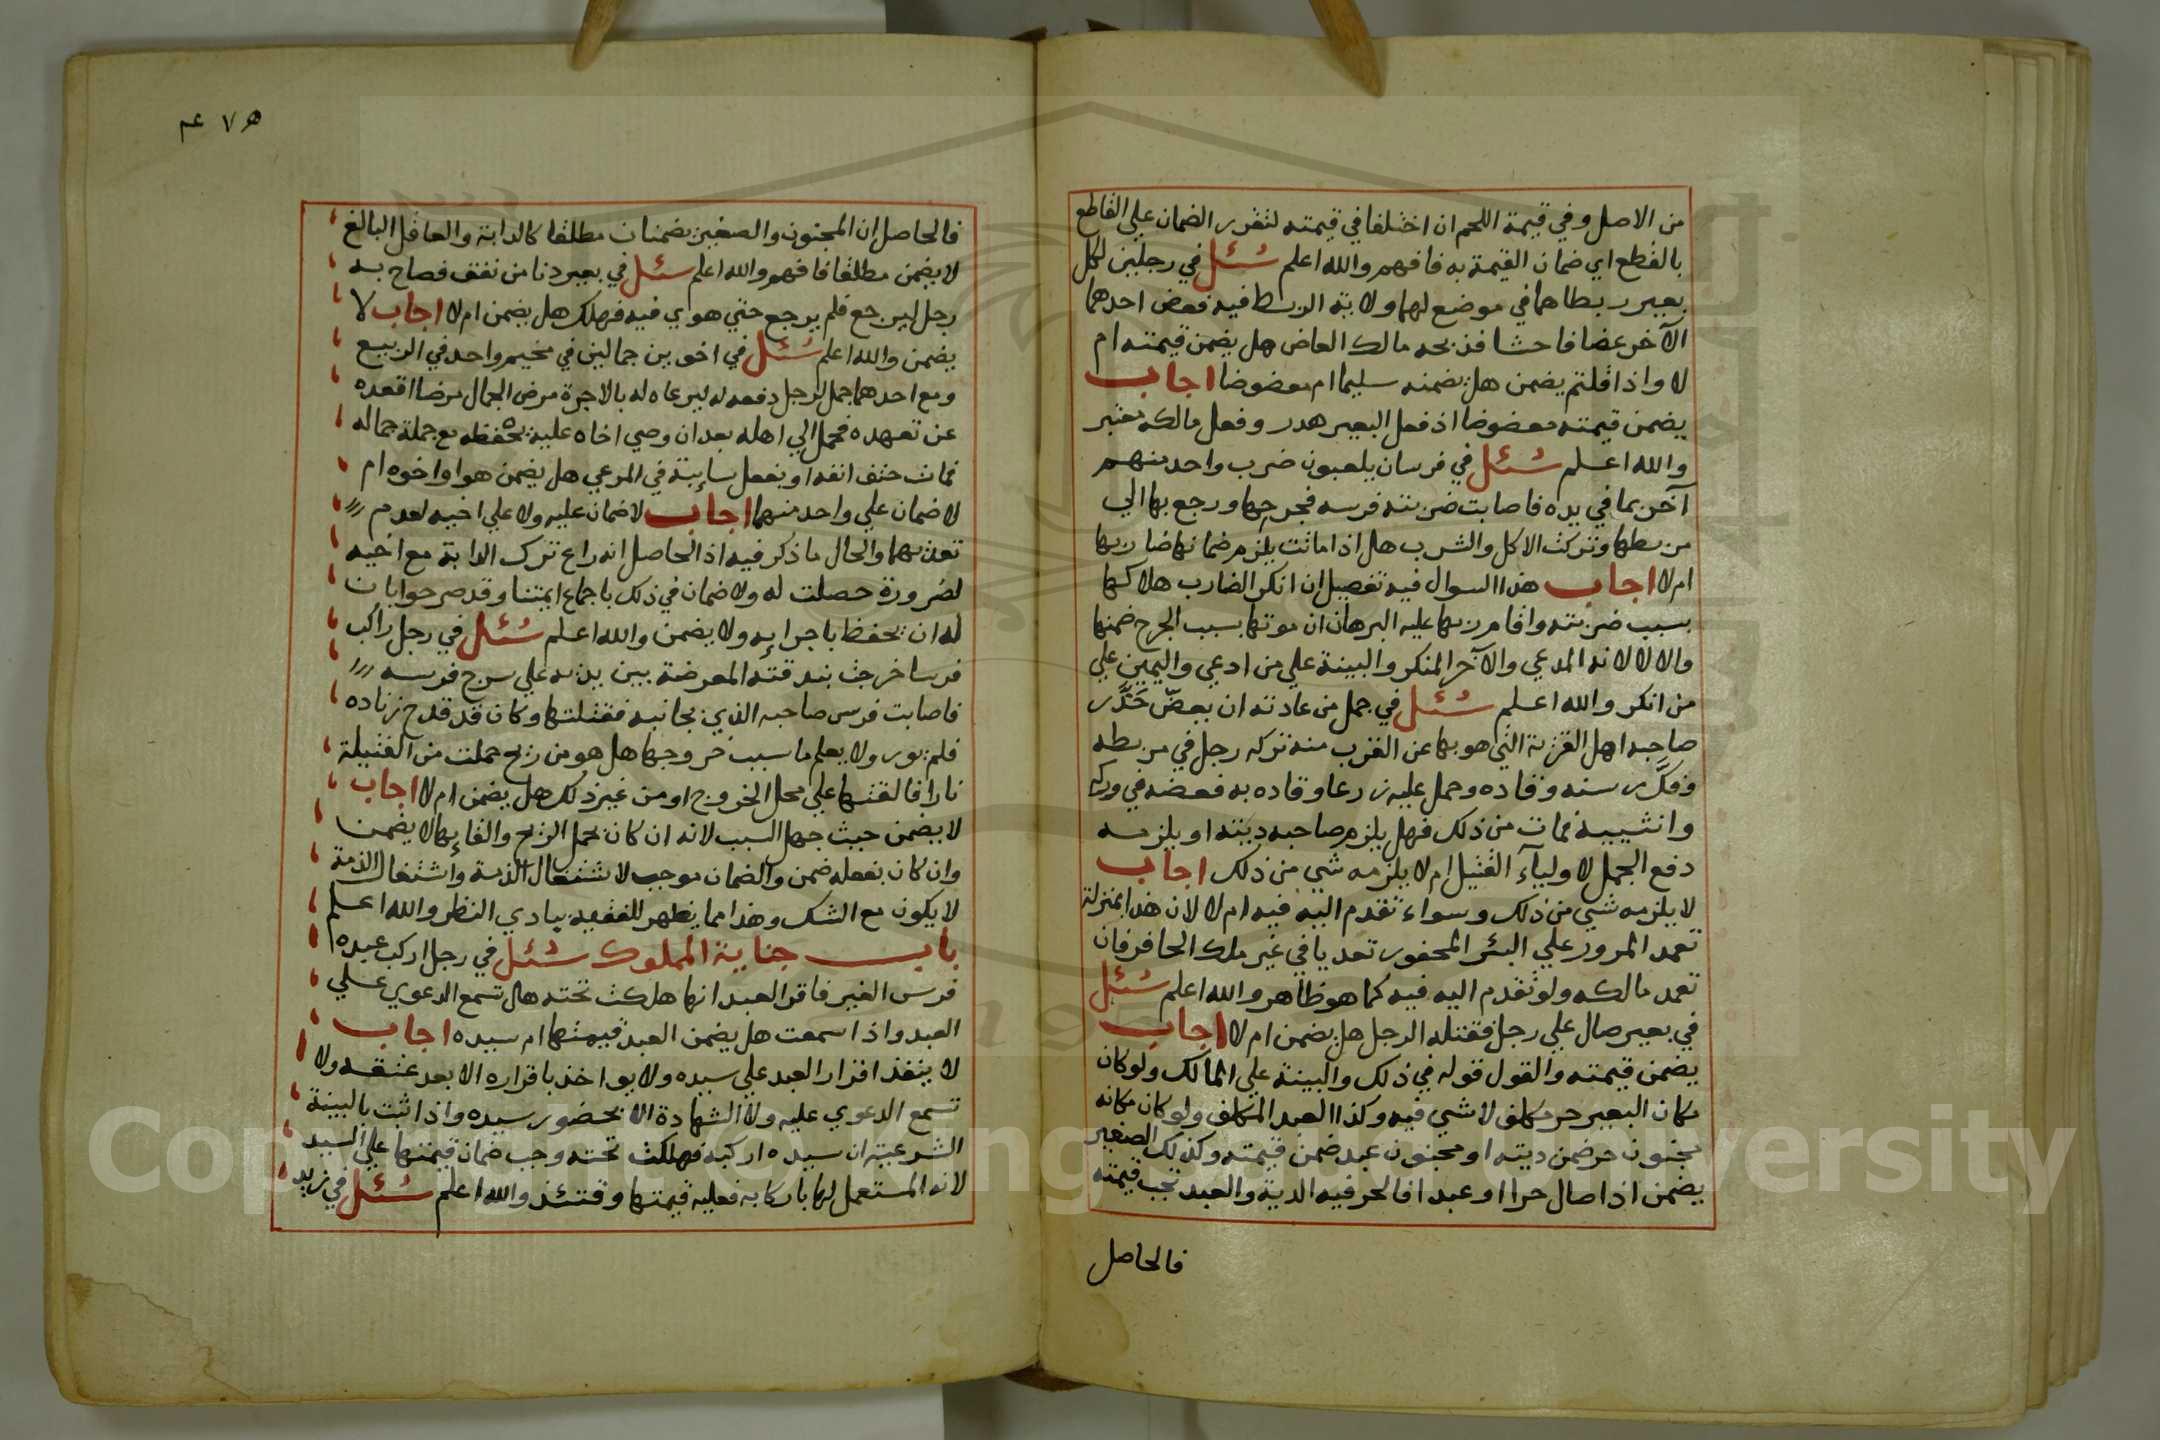 من الاصل وفي قيمة اللحم ان اختلفا في قيمته لتقرر الضمان علي القاطع
بالقطع اي ضمان القيمة به فافهم والله اعلم سئل في رجلين لكل
بعير ربطاهما في موضع لهما ولاية الربط فيه فعض احدهما
الآخر عضا فاحشا فذبحه مالك العاض هل يضمن قيمته ام
لا واذا قلتم يضمن هل يضمنه سليما ام معضوضا اجاب
يضمن قيمته معضوضا اذ فعل البعير هدر وفعل مالكه معتبر
والله اعلم سئل في فرسان يلعبون ضرب واحد منهم
آخر بما في يده فاصابت ضربته فرسه فجرحها ورجع بها الي
مربطها وتركت الاكل والشرب هل اذا ماتت يلزم ضمانها ضاربها
ام لا اجاب هذا السوال فيه تفصيل ان انكر الضارب هلاكها
بسبب ضربته واقام ربها عليه البرهان ان موتها بسبب الجرح ضمنها
والا لا لانه المدعي والآخر المنكر والبينة علي من ادعي واليمين علي
من انكر والله اعلم سئل في جمل من عادته ان يعضّ حَذَّر
صاحبه اهل القرية التي هو بها عن القرب منه تركه رجل في مربطه
وفكَّ رسنه وقاده وحمل عليه زرعا وقاده به فعضه في وركه
وانثييه فمات من ذلك فهل يلزم صاحبه ديته او يلزمه
دفع الجمل لاوليآء القتيل ام لا يلزمه شي من ذلك اجاب
لا يلزمه شي من ذلك وسواء تقدم اليه فيه ام لا لان هذا بمنزلة
تعمد المرور علي البئر المحفور تعديا في غير ملك الحافر فان
تعمد مالكه ولو تقدم اليه فيه كما هو ظاهر والله اعلم سئل
في بعير صال علي رجل فقتله الرجل هل يضمن ام لا اجاب
يضمن قيمته والقول قوله في ذلك والبينة علي المالك ولو كان
مكان البعير حر مكلف لا شي فيه وكذا العبد المكلف ولو كان مكانه
مجنون حر ضمن ديته او مجنون عبد ضمن قيمته وكذلك الصغير
يضمن اذا صال حرا او عبدا فالحر فيه الدية والعبد تجب قيمته
فالحاصل
فالحاصل ان المجنون والصغير يضمنان مطلقا كالدابة والعاقل البالغ
لا يضمن مطلقا فافهم والله اعلم سئل في بعير دنا من نفق فصاح به
رجل ليرجع فلم يرجع حتي هوي فيه فهلك هل يضمن ام لا اجاب لا
يضمن والله اعلم سئل في اخوين جمالين في مخيم واحد في الربيع
ومع احدهما جمل لرجل دفعه له ليرعاه له بالاجرة مرض الجمال مرضا اقعده
عن تعهده فحمل الي اهله بعد ان وصي اخاه عليه بحفظه مع جملة جماله
فمات حتف انفه او بفعل سايبة في المرعي هل يضمن هو او اخوه ام
لا ضمان علي واحد منهما اجاب لا ضمان عليه ولا علي اخيه لعدم
تعديهما والحال ما ذكر فيه اذ الحاصل انه راع ترك الدابة مع اخيه
لضرورة حصلت له ولا ضمان في ذلك باجماع ايمتنا وقد صرحوا بان
له ان يحفظ باجرايه ولا يضمن والله اعلم سئل في رجل راكب
فرسا خرجت بندقته المعرضة بين يديه علي سرج فرسه
فاصابت فرس صاحبه الذي بجانبه فقتلتها وكان قد قدح زناده
فلم يور ولا يعلم ما سبب خروجها هل هو من ريح حملت من الفتيلة
نارا فالقتها علي محل الخروج او من غير ذلك هل يضمن ام لا اجاب
لا يضمن حيث جهل السبب لانه ان كان بحمل الريح والقايها لا يضمن
وان كان بفعله ضمن والضمان موجب لاشتغال الذمة واشتغال الذمة
لا يكون مع الشك وهذا مما يظهر للفقيه ببادي النظر والله اعلم
باب جناية المملوك سئل في رجل اركب عبده
فرس الغير فاقر العبد انها هلكت تحته هل تسمع الدعوي علي
العبد واذا سمعت هل يضمن العبد قيمتها ام سيده اجاب
لا ينفذ اقرار العبد علي سيده ولا يواخذ باقراره الا بعد عتقه ولا
تسمع الدعوي عليه ولا الشهادة الا بحضور سيده واذا ثبت بالبينة
الشرعية ان سيده اركبه فهلكت تحته وجب ضمان قيمتها علي السيد
لانه المستعمل لها باركابه فعليه قيمتها وقتئذ والله اعلم سئل في زيد
Copyright © King Saud University